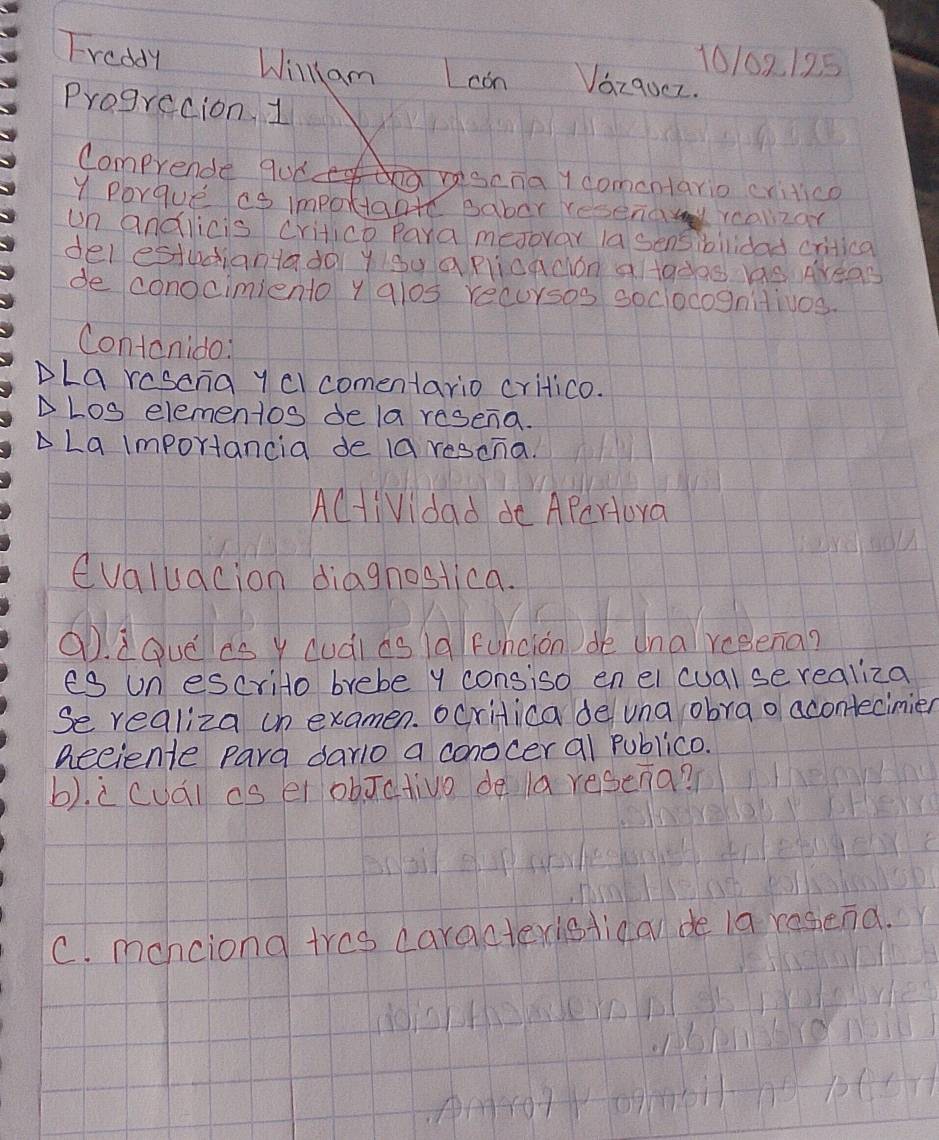 Freddy William León Vázquez. 10/02/25
Progrecion, 1
Comprende que es una reseña y comentario critico
y Porqué es importante saber reseñar y realizar
un análicis critico Para mejorar la sensibilidad critica
del estudiantado y su aplicación a todas las Areas
de conocimiento y alos recursos sociocognitivos.
Contenido:
La reseña y el comentario critico.
Los elementos de la reseña.
La importancia de la reseña.
Actividad de Apertura
Evaluacion diagnostica.
a). ¿Qué es y cuál es la Función de una reseña?
es un escrito brebe y consiso en el cual se realiza
Se realiza un examen. o critica de una obra o acontecimien
Reciente Para darlo a conocer al Publico.
b). ¿Cuál es el objetivo de la reseña?
C. menciona tres caracteristica de la reseña.